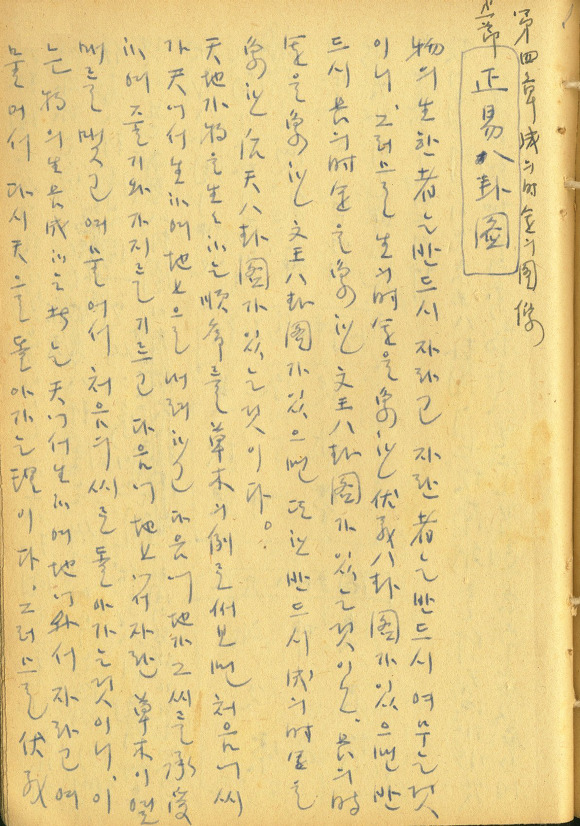 第四章 成의 時運의 圖像
一節 正易八卦圖
物의 生한 者는 반드시 자라고 자란 者는 반드시 여무는 것
이니 그러므로 生의 時運을 象한 伏羲八卦圖가 있으면 반
드시 長의 時運을 象한 文王八卦圖가 있는 것이오. 長의 時
運을 象한 文王八卦圖가 있으면 또한 반드시 成의 時運을
象한 八卦圖가 있는 것이다.
天地가 物을 生하는 順序를 草木의 例로써 보면 처음에 씨
가 天에서 生하여 地上으로 내려하고 다음에 地가 그 씨를 承受
하여 줄기와 가지를 기르고 다음에 地上에서 자란 草木이 열
매를 맺고 여물어서 처음의 씨로 돌아가는 것이니, 이
는 物의 生長成하는 者는 天에서 生하여 地에 와서 자라고 여
물어서 다시 天으로 돌아가는 理이다. 그러므로 伏羲